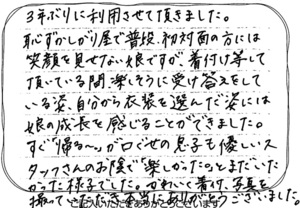 3年ぶりに利用させて頂きました。
恥ずかしがり屋で普段、初対面の方には
笑顔を見せない娘ですが、着付け等して
頂いている間、楽しそうに受け答えをして
いる姿、自分から衣装を選んだ姿には
娘の成長を感じることができました。
すぐ"帰る〜"が口ぐせの息子も優しいス
タッフさんのお陰で"楽しかった"とまだいた
かった様子でした。かわいく着付、写真を
撮っていただき本当にありがとうございました
ご記入いただきありがとうございます